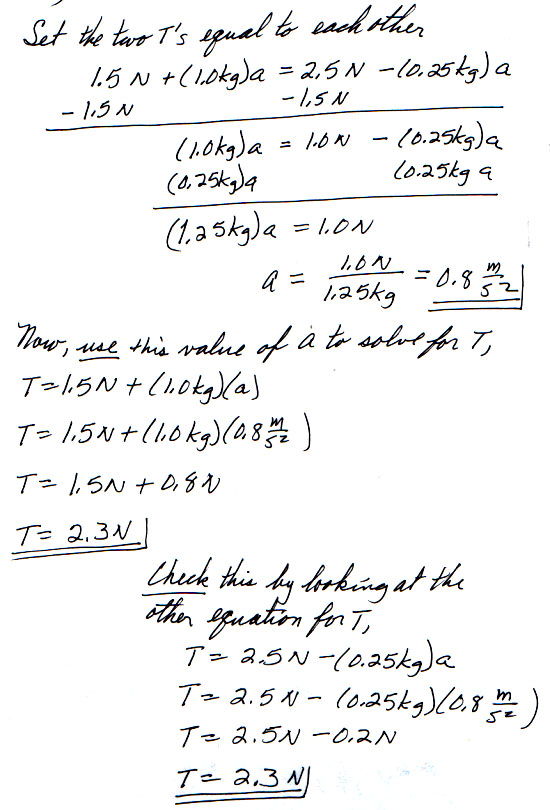 Set the two T's equal to each other
1.5 N + (1.0kg)a = 2.5 N - (0.25kg)a
- 1.5 N - 1.5 N
(1.0kg)a = 1.0 N - (0.25kg)a
(0.25kg)a (0.25kg a
(1.25kg)a = 1.0N
a = 1.0 N / 1.25kg = 0.8 m/s²
Now, use this value of a to solve for T,
T = 1.5N + (1.0kg)(a)
T = 1.5N + (1.0 kg)(0.8 m/s²)
T = 1.5N + 0.8N
T = 2.3N
Check this by looking at the
other equation for T,
T = 2.5N - (0.25kg)a
T = 2.5 N - (0.25kg)(0.8 m/s²)
T = 2.5N - 0.2N
T = 2.3 N